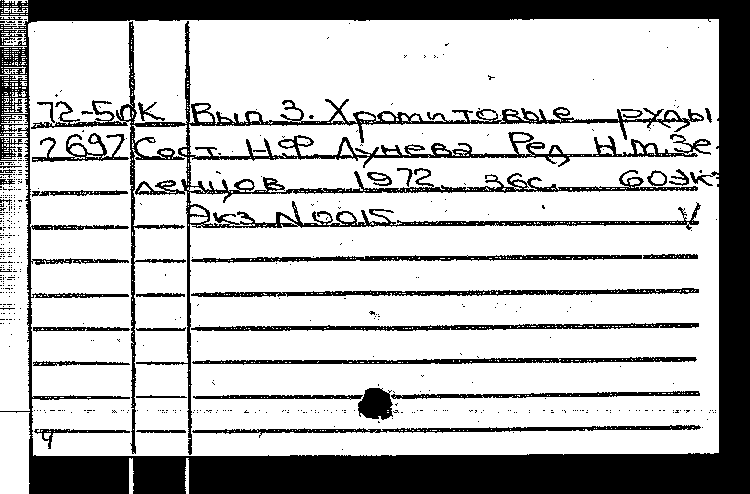 72-50К Вып 3. Хромитовые руды.
2697 Сост. Н.Ф. Лунева Ред Н.т.Зе-
ленцов 1972. 36с. 60экз
Экз N0015 V
4